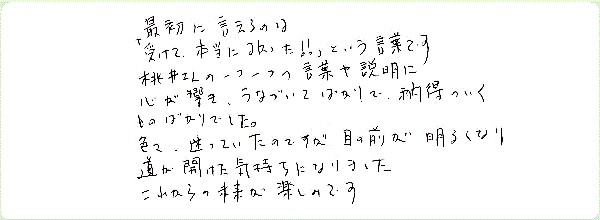 「最初に言えるのは
受けて、本当に良かった!!」という言葉です
桃井さんの一つ一つの言葉や説明に
心が響き、うなづいてばかりで、納得のいく
ものばかりでした。
色々、迷っていたのですが 目の前が 明るくなり
道が開けた気持ちになりました
これからの未来が楽しみです